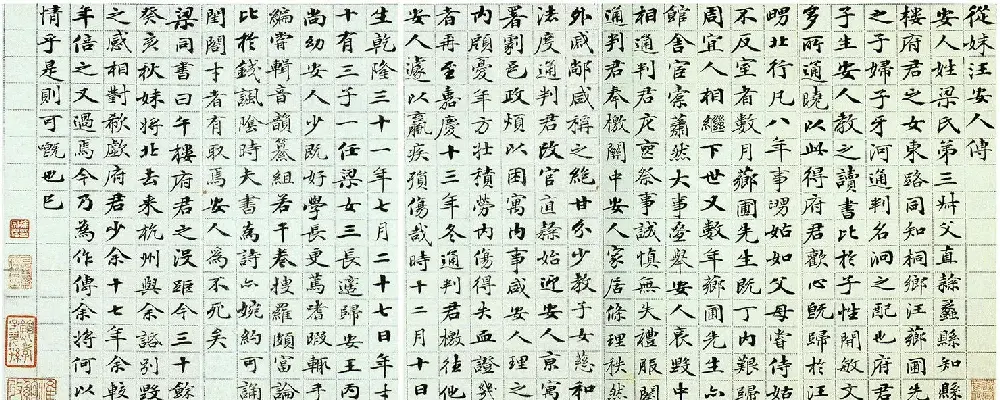 從妹汪安人傳
安人姓梁氏弟三叔父直隸蠡縣知縣
樓府君之女東路同知桐鄉汪薌圃先
之子婦子牙河通判名泂之配也府君
子生安人教之讀書比於子性開敏文
多所通曉以此得府君歡心既歸於汪
舅北行凡八年事舅姑如父母嘗侍姑
不反室者數月薌圃先生既丁內艱歸
周宜人相繼下世又數年薌圃先生亦
館舍宦橐蕭然大事壘舉安人哀毀中
相通判君庀喪祭事誠慎無失禮服闋
通判君奉檄關中安人家居條理秩然
外戚鄰咸稱之絕甘分少教子女慈和
法度通判君改官直隸始迎安人京寓
署劇邑政煩以困寓內事咸安人理之
內顧憂年方壯積勞內傷得失血證幾
者再至嘉慶十三年冬通判君檄往他
安人遽以羸疾殞傷哉時十二月十日
生乾隆三十一年七月二十七日年才
十有三子一任梁女三長適歸安王丙
尚幼安人少既好學長更篤耆暇輒手
編嘗輯音韻纂組若干卷搜羅頗富論
比於錢諷陰時夫書為詩亦婉約可誦
閨閤才者有取焉安人為不死矣
梁同書曰午樓府君之沒距今三十餘
癸亥秋妹將北去來杭州與余諮別
之感相對欷歔府君少余十七年余較
年倍之又過焉今乃為作傳余將何以
情乎是則可嘅也已